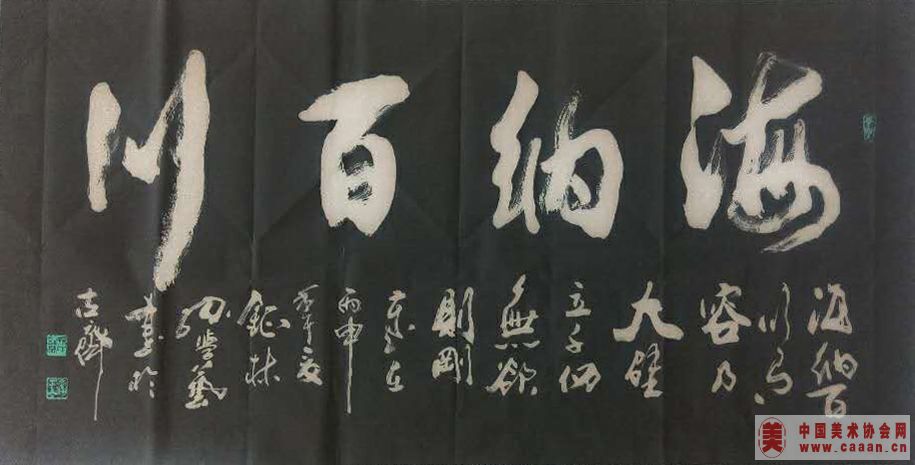 海纳百川
海纳百
川有
容乃
大壁
立千仞
無欲
則剛
丙申
書於
美
中国美术协会网
www.caaan.cn